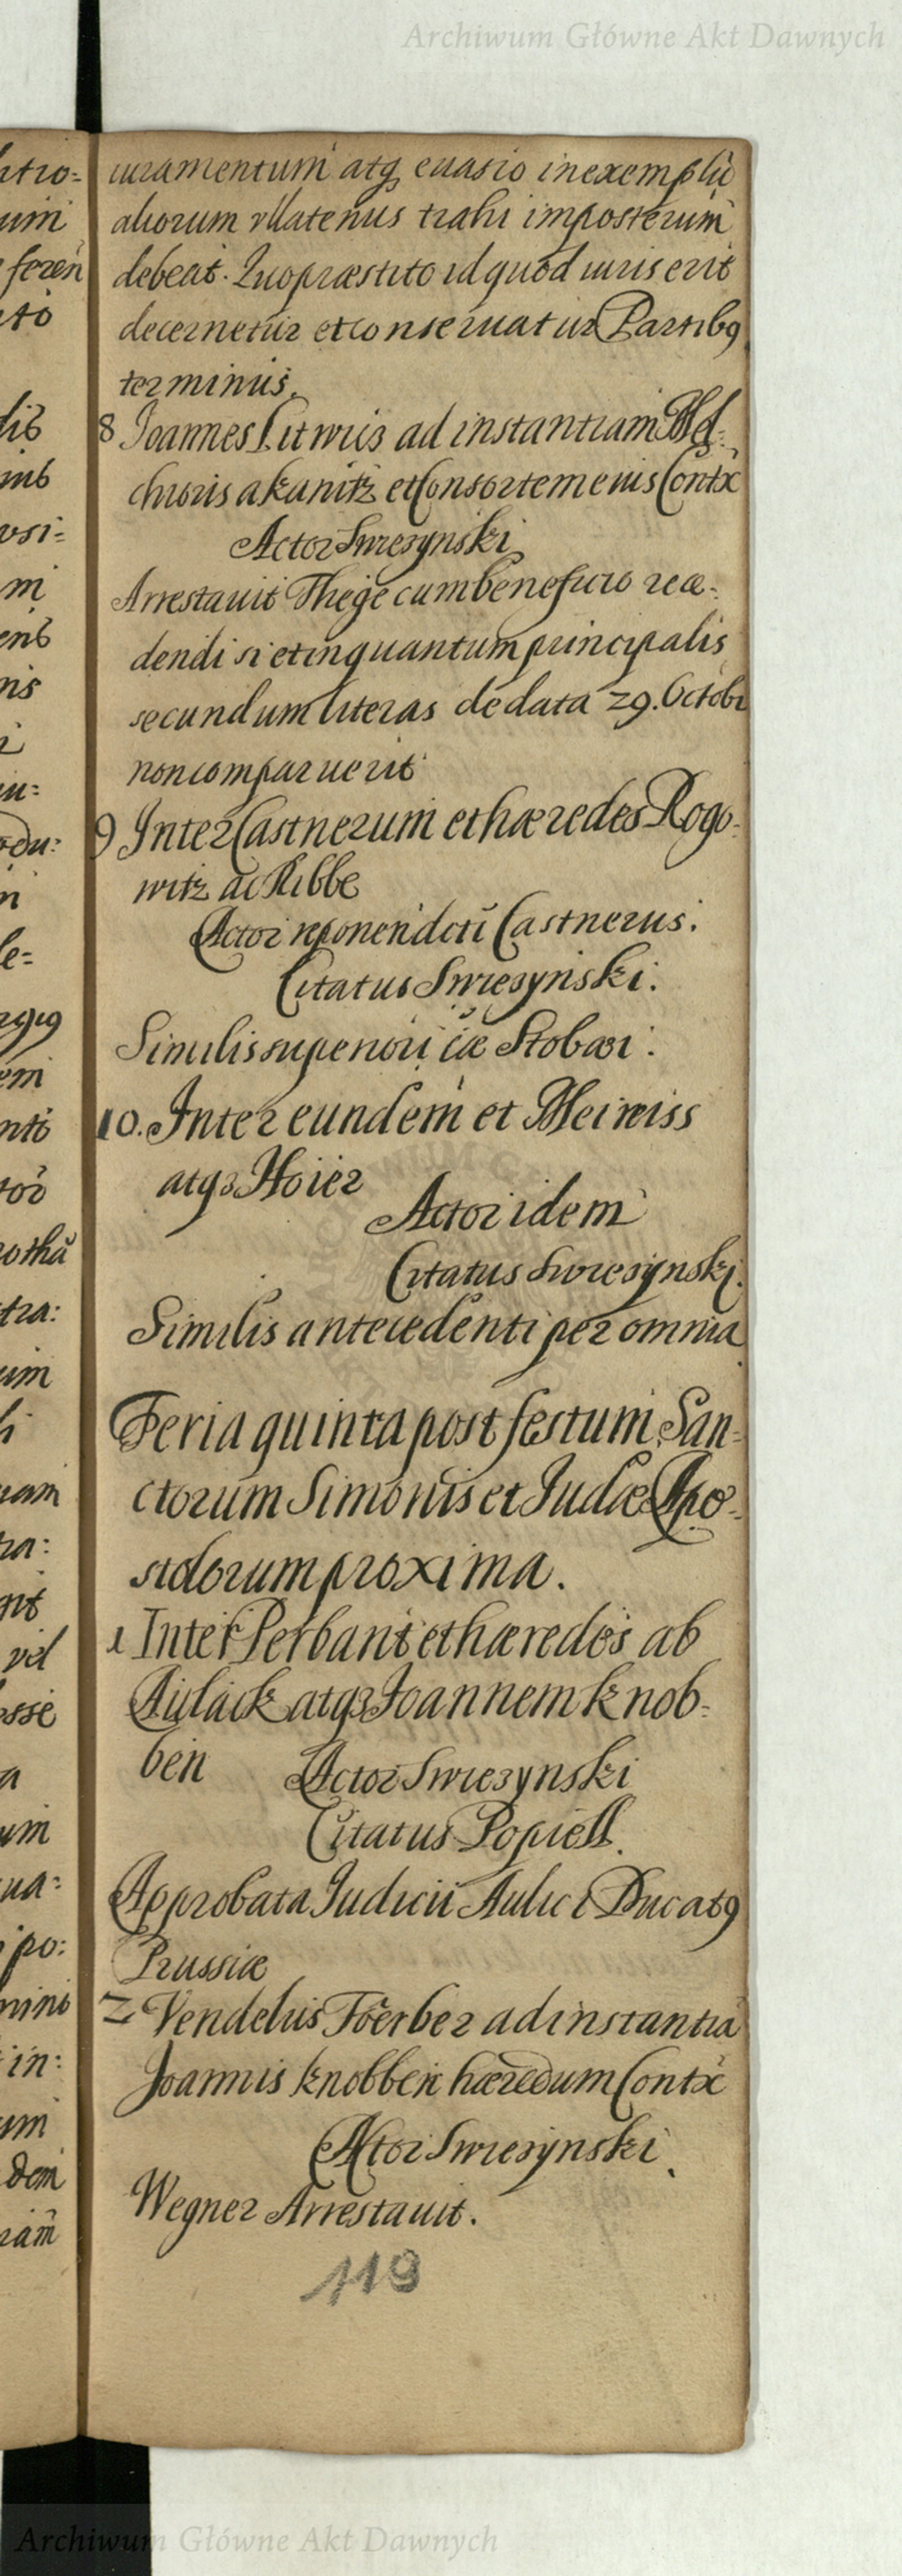 Archiwum Główne Akt Dawnych
iuramentum atq, euasio in exemplū
aliorum vllatenus trahi imposterum
debeat. Quo præstito id quod iuris erit
decernetur et conseruatur Partibg
terminus.
8 Joannes Litwus ad instantiam Mel-
chioris a kanitz et Consortem eius Contx
Actor Swiesynski
Arrestauit Thege cum beneficio reæ-
dendi si et inquantum principalis
secundum literas de data 29. Octobr
non comparuerit
9 Inter Castnerum et hæredes Rogo-
witz ac Ribbe
Actor Castnerus.
Citatus Swiesynski.
Similis superiori Stobæi.
10. Inter eundem et Meiwiss
atq3 Hoier
Actor idem
Citatus Swiesynski.
Similis antecedenti per omnia
Feria quinta post festum San-
ctorum Simonis et Judæ Apo-
stolorum proxima.
1 Inter Perbant et hæredes ab
Aulack atq3 Joannem knob-
ben Actor Swiesynski
Citatus Popiell.
Approbata Judicii Aulici Ducatg
Prussiæ
2 Vendelius Föerber ad instantiā
Joannis knobben hæredum Contx
Actor Swiesynski
Wegner Arrestauit.
119
Archiwum Główne Akt Dawnych